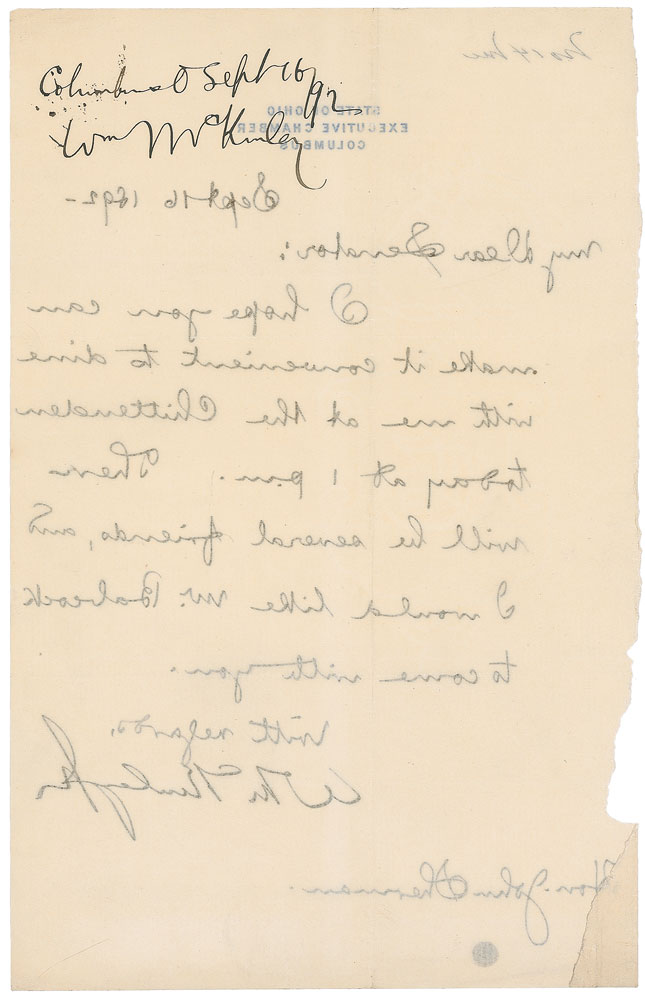 Columbus O Sept 16/92
Wm McKinley
STATE OF OHIO
EXECUTIVE CHAMBER
COLUMBUS
Sept 16 1892-
My dear Senator:
I hope you can
make it convenient to dine
with me at the Chittenden
today at 1 p.m. There
will be several friends, and
I would like Mr. Babcock
to come with you.
With regards,
W McKinley Jr
Hon. John Sherman.